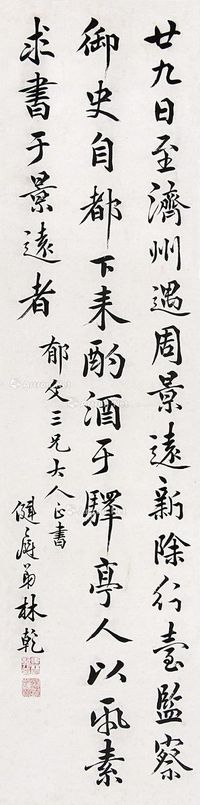 廿九日至濟州遇周景遠新除行臺監察
御史自都下来酌酒于驛亭人以紙素
求書于景遠者
郁文三兄大人正書
健庵弟林乾